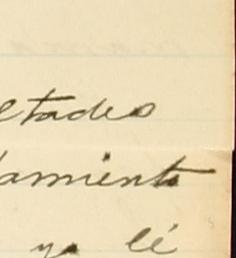 ltades
damiento
ya lé